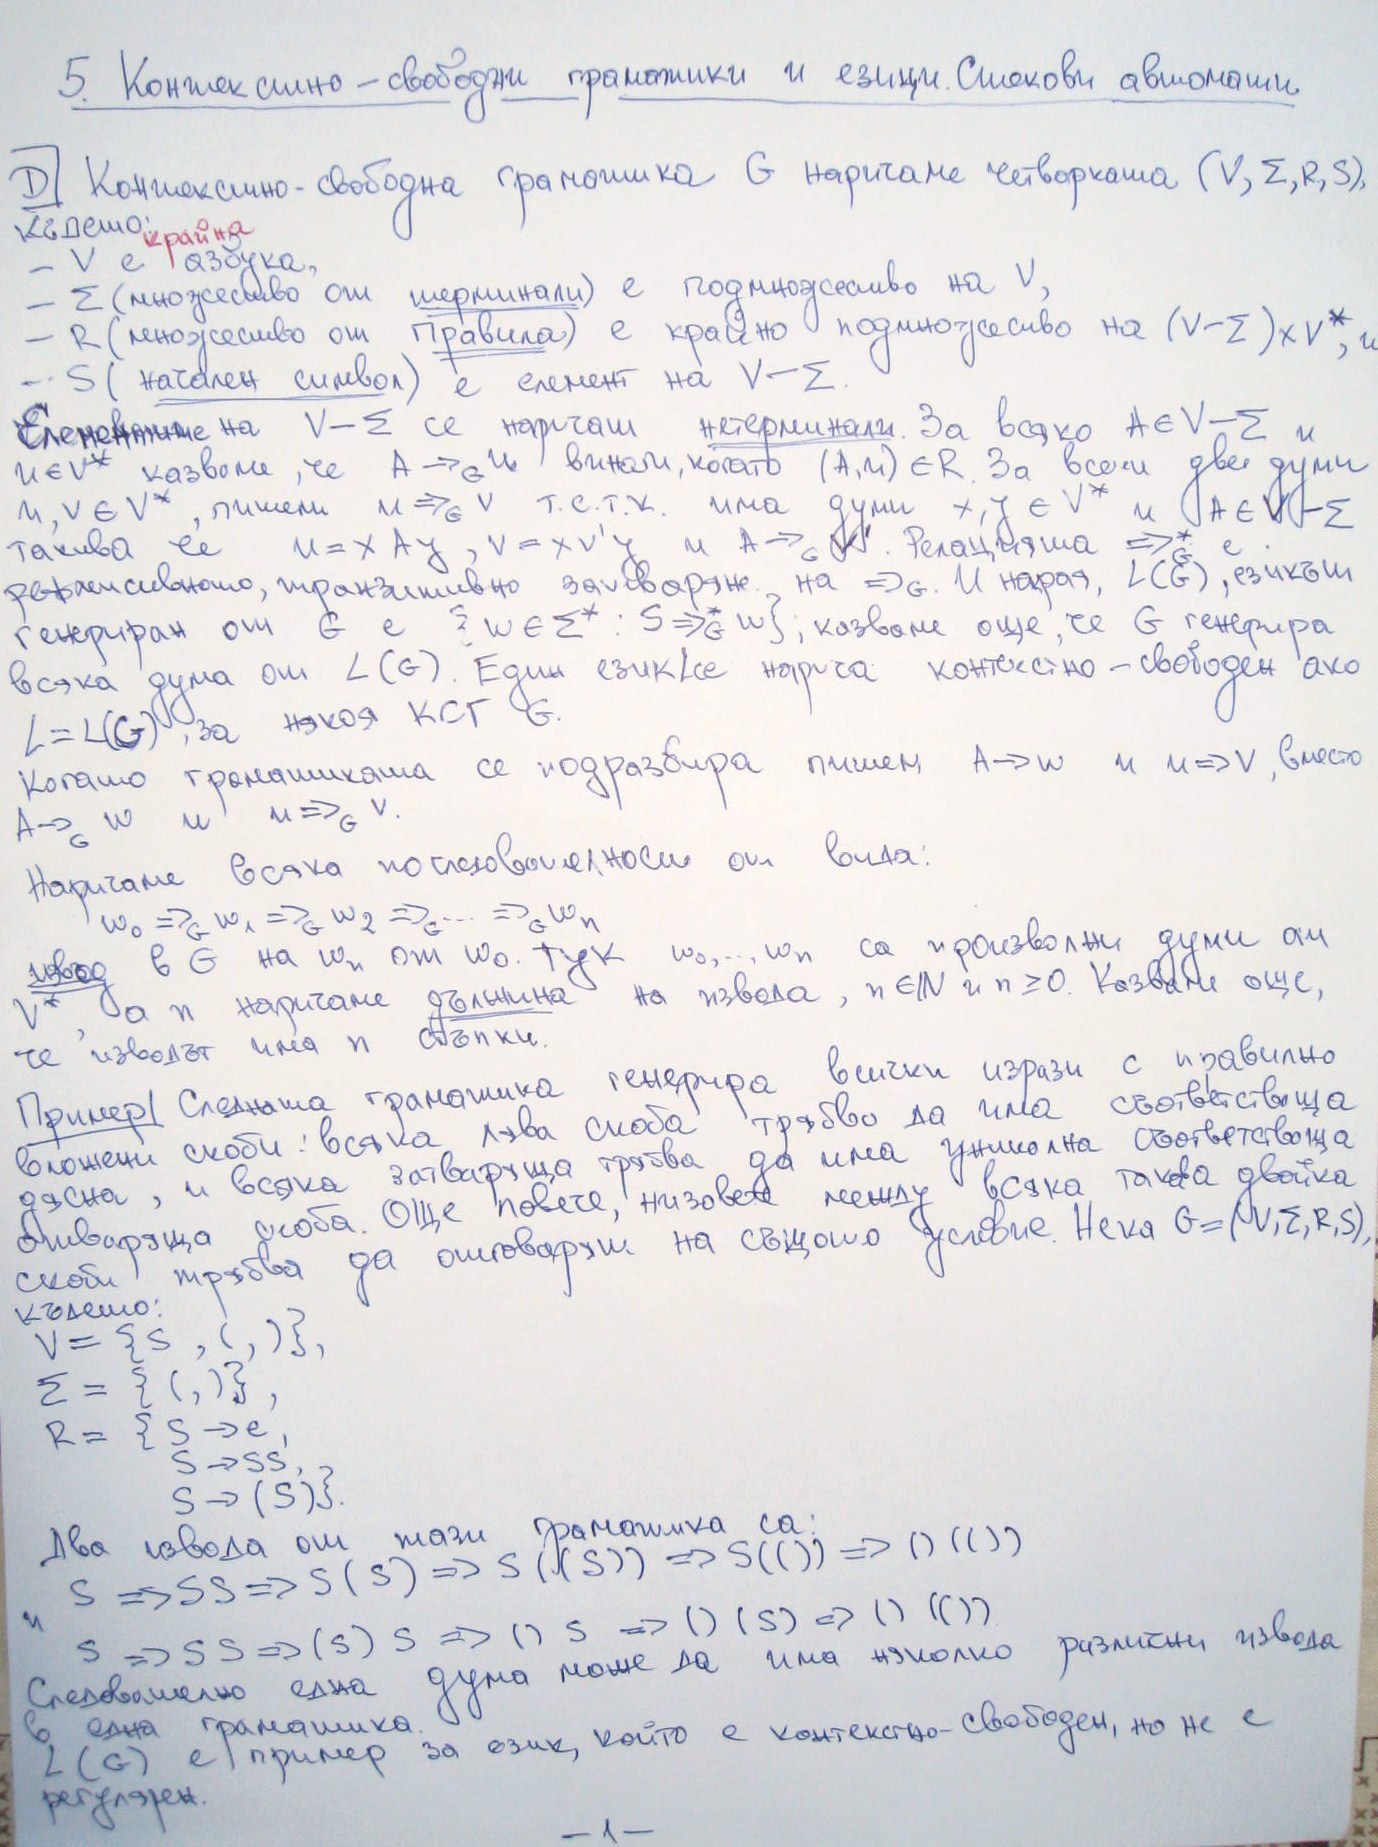 5. Контекстно-свободни граматики и езици. Стекови автомати
D| Контекстно-свободна граматика G наричаме четворката (V, Σ, R, S),
където:
крайна
- V е азбука,
- Σ (множество от терминали) е подмножество на V,
- R (множество от правила) е крайно подмножество на (V-Σ)×V*, и
- S (начален символ) е елемент на V-Σ.
Елементите на V-Σ се наричат нетерминали. За всяко A∈V-Σ и
u∈V* казваме, че A →_G u винаги, когато (A,u)∈R. За всеки две думи
u, v ∈ V*, пишем u ⇒_G v т.с.т.к. има думи x, y ∈ V* и A∈V-Σ
такива че u = xAy, v = xv'y и A →_G v'. Релацията ⇒*_G е
рефлексивното, транзитивно затваряне на ⇒_G. И накрая, L(G), езикът
генериран от G е {w∈Σ* : S ⇒*_G w}; казваме още, че G генерира
всяка дума от L(G). Един език L се нарича контекстно-свободен ако
L = L(G), за някоя КСГ G.
Когато граматиката се подразбира пишем A→w и u⇒v, вместо
A →_G w и u ⇒_G v.
Наричаме всяка последователност от вида:
w₀ ⇒_G w₁ ⇒_G w₂ ⇒_G ... ⇒_G wₙ
извод в G на wₙ от w₀. Тук w₀,..,wₙ са произволни думи от
V*, а n наричаме дължина на извода, n∈ℕ и n≥0. Казваме още,
че изводът има n стъпки.
Пример| Следната граматика генерира всички изрази с правилно
вложени скоби: всяка лява скоба трябва да има съответстваща
дясна, и всяка затваряща трябва да има уникална съответстваща
отваряща скоба. Още повече, низовете между всяка такава двойка
скоби трябва да отговарят на същото условие. Нека G = (V, Σ, R, S),
където:
V = {S, (, )},
Σ = {(, )},
R = {S → e,
S → SS,
S → (S)}.
Два извода от тази граматика са:
S ⇒ SS ⇒ S(S) ⇒ S((S)) ⇒ S(()) ⇒ ()(())
и
S ⇒ SS ⇒ (S)S ⇒ ()S ⇒ ()(S) ⇒ ()(())
Следователно една дума може да има няколко различни извода
в една граматика.
L(G) е пример за език, който е контекстно-свободен, но не е
регулярен.
-1-